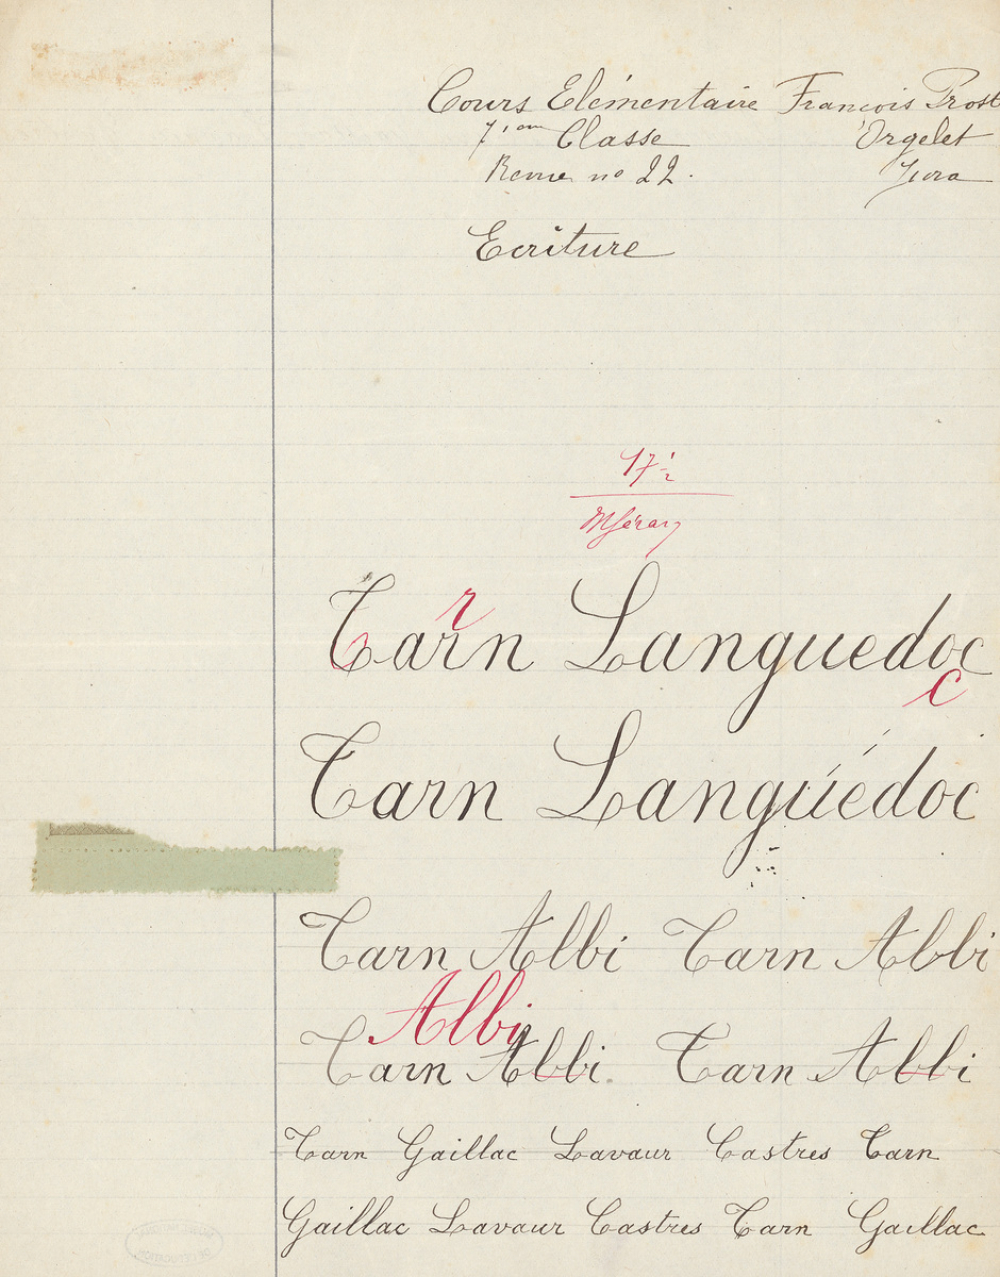 Cours Elémentaire François Prost
7ième Classe Orgelet
Revue no 22. Jura
Ecriture
17 1/2
r
Tarn Languedoc
c
Tarn Langúédoc
Tarn Albi Tarn Abbi
Albi
Tarn Abbi. Tarn Abbi
Tarn Gaillac Lavaur Castres Tarn
Gaillac Lavaur Castres Tarn Gaillac